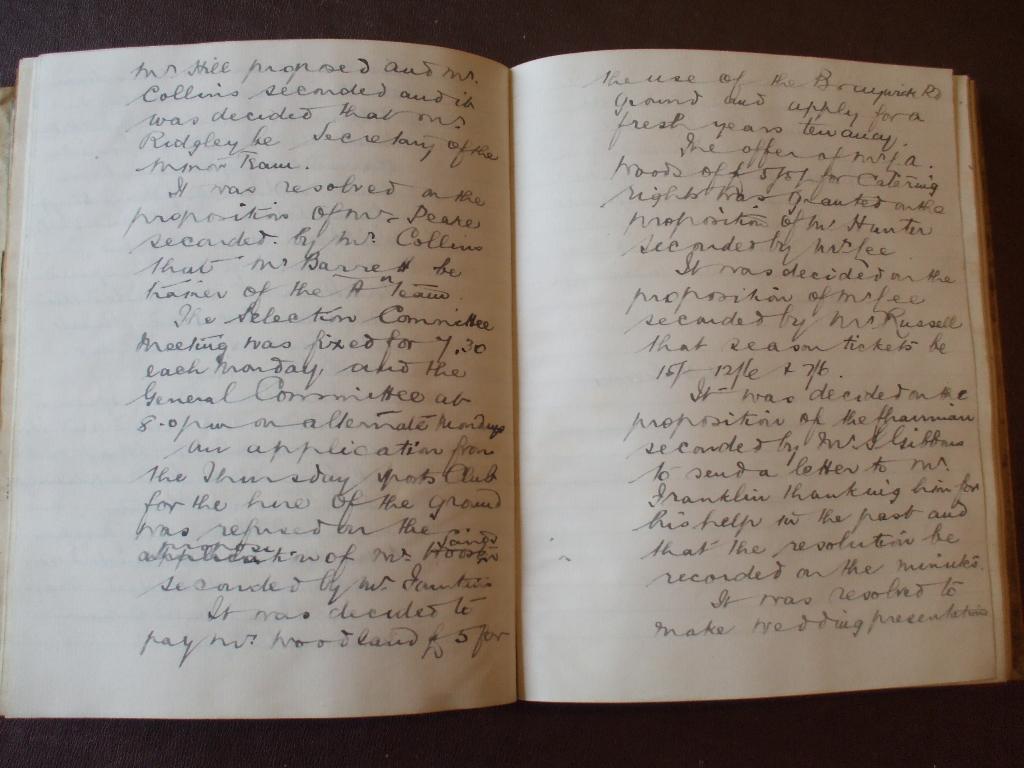 Mr Hill proposed and Mr.
Collins seconded and it
was decided that Mr.
Ridgley be Secretary of the
Minor Team.
It was resolved on the
proposition of Mr. Peare
seconded by Mr. Collins
that Mr Barrett be
trainer of the A Team.
The Selection Committee
Meeting was fixed for 7.30
each Monday, and the
General Committee at
8.0pm on alternate Mondays
An application from
the Thursday Sports Club
for the hire of the ground
was refused on the
of Mr.
seconded by Mr.
It was decided to
pay Mr. Woodland £5 for
the use of the Rd
ground and apply for a
fresh years tenancy.
The offer of Mr J. A.
Woods of £ for Catering
rights was granted on the
proposition of Mr Hunter
seconded by Mr Lee
It was decided on the
proposition of Mr Lee
seconded by Mr Russell
that season tickets be
15/- 12/6 & 7/6.
It was decided on the
proposition of the Chairman
seconded by Mr Gibbons
to send a letter to Mr.
Franklin thanking him for
his help in the past and
that the resolution be
recorded on the minutes.
It was resolved to
make wedding presentations